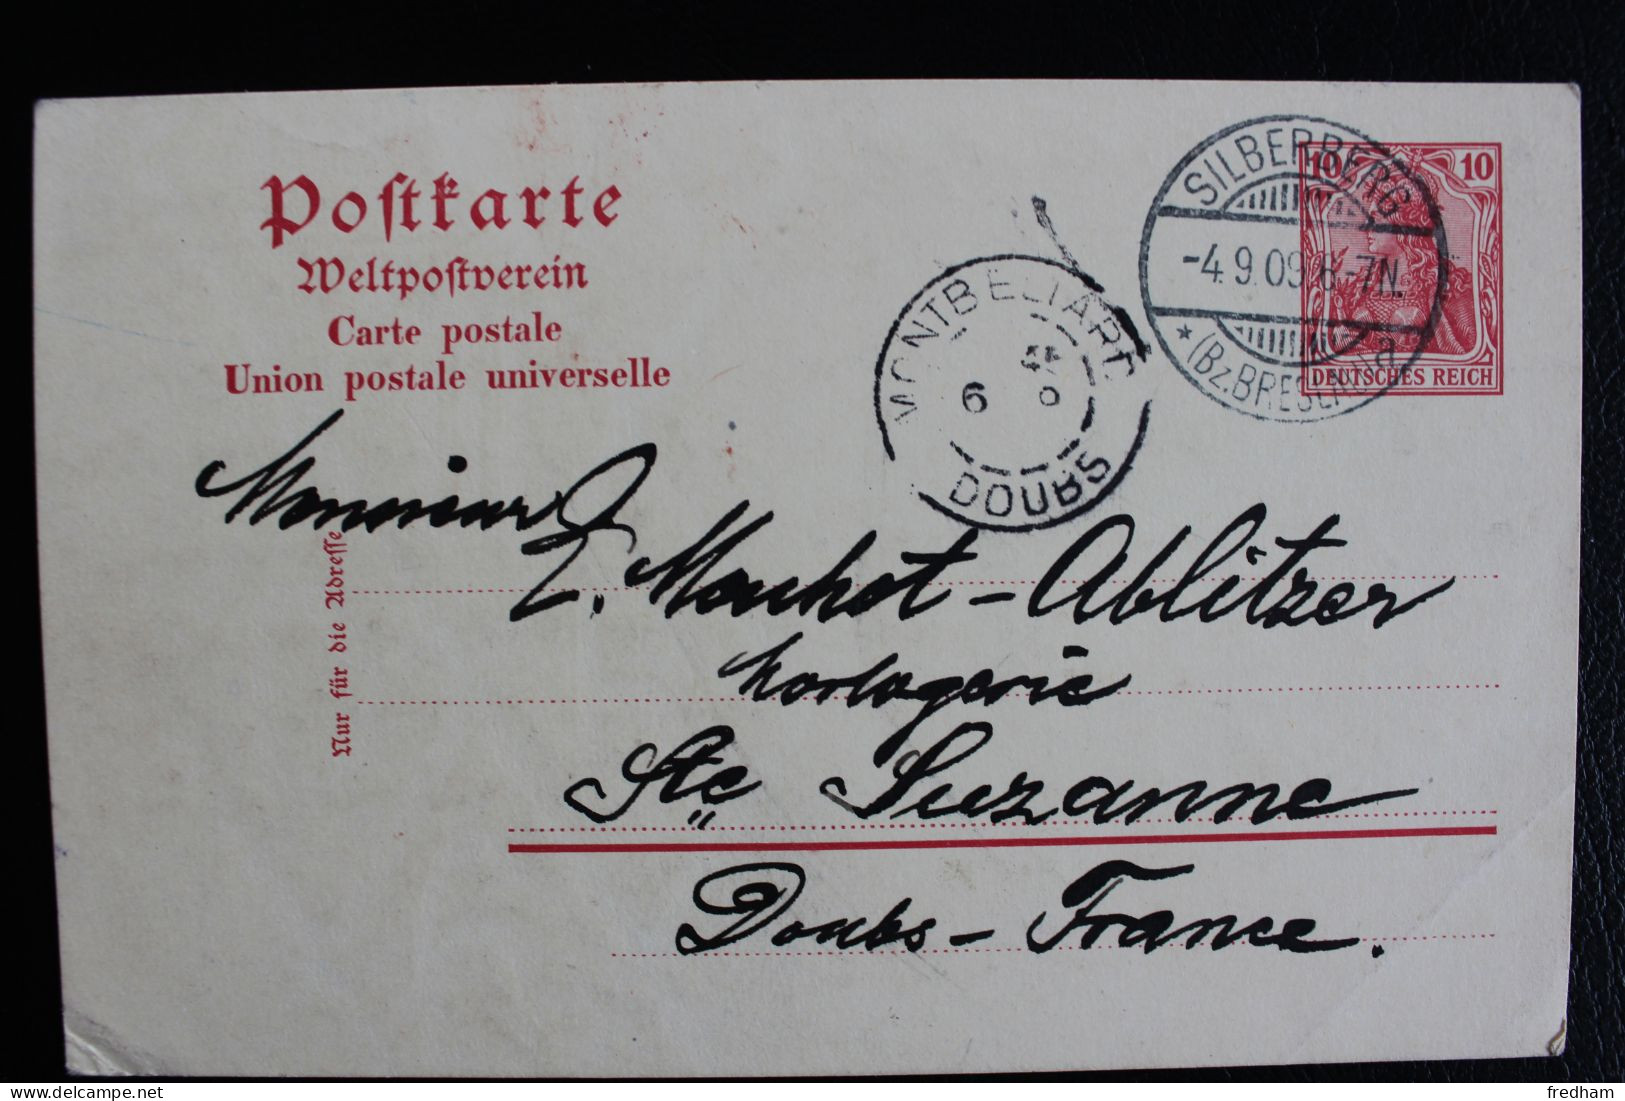 Postkarte
Weltpostverein
Carte postale
Union postale universelle
SILBERBERG
-4.9.09.6-7N.
* (Bz. BRESLAU) a
10 10
DEUTSCHES REICH
MONTBELIARD
6
DOUBS
Nur für die Adresse
Monsieur
L. Mouhot-Ablitzer
horlogerie
Ste Suzanne
Doubs - France.
fredham